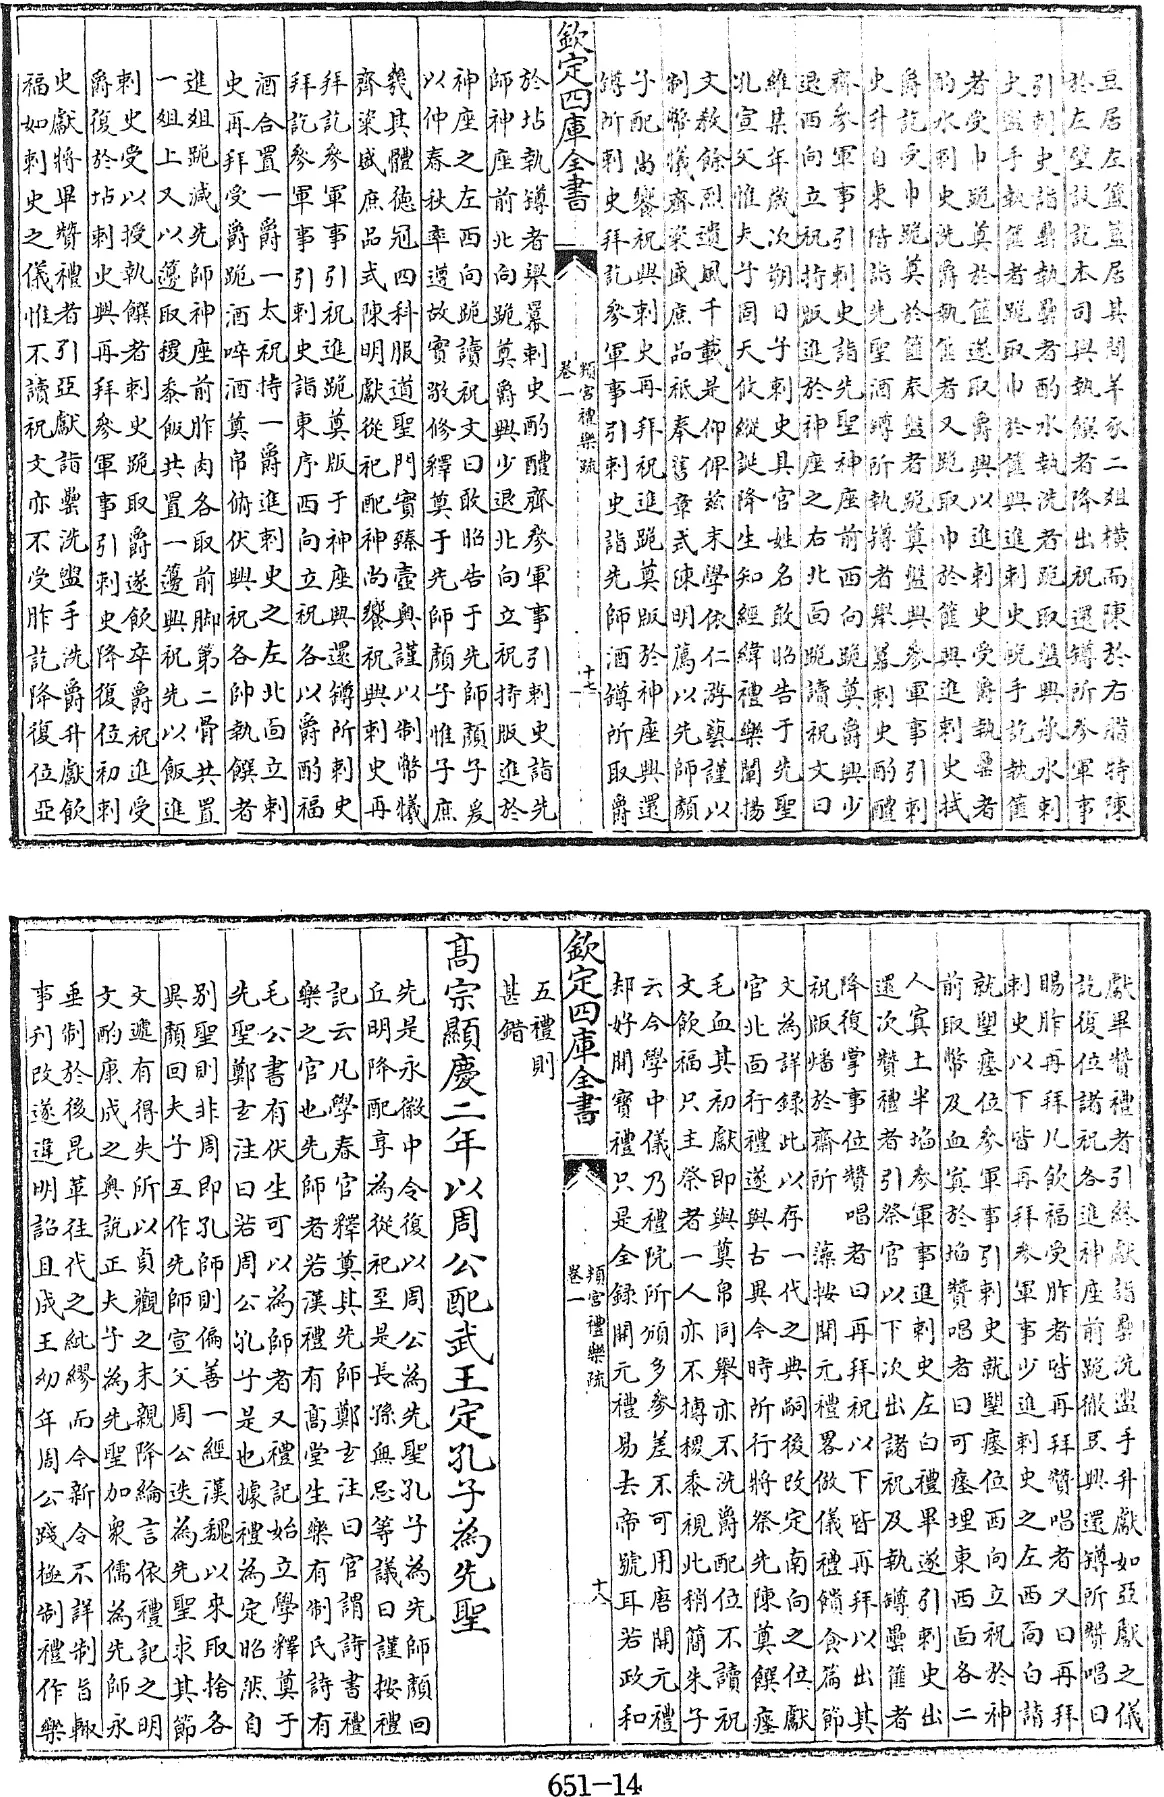 豆居左簠簋居其間羊豕二俎橫而陳於右腊特陳
於左壁設訖本司與執饌者降出祝還罇所參軍事
引刺史詣罍執罍者酌水執洗者跪取盤興承水刺
史盥手執篚者跪取巾於篚興進刺史帨手訖執篚
者受巾跪奠於篚遂取爵興以進刺史受爵執罍者
酌水刺史洗爵執篚者又跪取巾於篚興進刺史拭
爵訖受巾跪奠於篚奉盤者跪奠盤興參軍事引刺
史升自東階詣先聖酒罇所執罇者舉冪刺史酌醴
齊參軍事引刺史詣先聖神座前西向跪奠爵興少
退西向立祝持版進於神座之右北面跪讀祝文曰
維某年歲次朔日子刺史具官姓名敢昭告于先聖
孔宣父惟夫子固天攸縱誕降生知經緯禮樂闡揚
文教餘烈遺風千載是仰俾茲末學依仁游藝謹以
制幣犧齊粢盛庶品祗奉舊章式陳明薦以先師顏
子配尚饗祝興刺史再拜祝進跪奠版於神座興還
罇所刺史拜訖參軍事引刺史詣先師酒罇所取爵
欽定四庫全書
頖宮禮樂疏
卷一
十七
於坫執罇者舉冪刺史酌醴齊參軍事引刺史詣先
師神座前北向跪奠爵興少退北向立祝持版進於
神座之左西向跪讀祝文曰敢昭告于先師顏子爰
以仲春秋率遵故實敬修釋奠于先師顏子惟子庶
幾其體德冠四科服道聖門實臻壼奧謹以制幣犧
齊粢盛庶品式陳明獻從祀配神尚饗祝興刺史再
拜訖參軍事引祝進跪奠版于神座興還罇所刺史
拜訖參軍事引刺史詣東序西向立祝各以爵酌福
酒合置一爵一太祝持一爵進刺史之左北面立刺
史再拜受爵跪酒啐酒奠帛俯伏興祝各帥執饌者
進俎跪減先師神座前胙肉各取前脚第二骨共置
一俎上又以籩取稷黍飯共置一籩興祝先以飯進
刺史受以授執饌者刺史跪取爵遂飲卒爵祝進受
爵復於坫刺史興再拜參軍事引刺史降復位初刺
史獻將畢贊禮者引亞獻詣罍洗盥手洗爵升獻飲
福如刺史之儀惟不讀祝文亦不受胙訖降復位亞
獻畢贊禮者引終獻詣罍洗盥手升獻如亞獻之儀
訖復位諸祝各進神座前跪徹豆興還罇所贊唱曰
賜胙再拜凡飲福受胙者皆再拜贊唱者又曰再拜
刺史以下皆再拜參軍事少進刺史之左西面白請
就望瘞位參軍事引刺史就望瘞位西向立祝於神
前取幣及血寘於埳贊唱者曰可瘞埋東西面各二
人寘土半埳參軍事進刺史左白禮畢遂引刺史出
還次贊禮者引祭官以下次出諸祝及執罇罍篚者
降復掌事位贊唱者曰再拜祝以下皆再拜以出其
祝版燔於齋所　藻按開元禮畧倣儀禮饋食篇節
文為詳録此以存一代之典嗣後改定南向之位獻
官北面行禮遂與古異今時所行將祭先陳奠饌瘞
毛血其初獻即與奠帛同舉亦不洗爵配位不讀祝
文飲福只主祭者一人亦不摶稷黍視此稍簡朱子
云今學中儀乃禮院所頒多參差不可用唐開元禮
却好開寶禮只是全録開元禮易去帝號耳若政和
欽定四庫全書
頖宮禮樂疏
卷一
十八
五禮則
甚錯
髙宗顯慶二年以周公配武王定孔子為先聖
先是永徽中令復以周公為先聖孔子為先師顏回
丘明降配享為從祀至是長孫無忌等議曰謹按禮
記云凡學春官釋奠其先師鄭玄注曰官謂詩書禮
樂之官也先師者若漢禮有髙堂生樂有制氏詩有
毛公書有伏生可以為師者又禮記始立學釋奠于
先聖鄭玄注曰若周公孔子是也據禮為定昭然自
別聖則非周即孔師則偏善一經漢魏以來取捨各
異顏回夫子互作先師宣父周公迭為先聖求其節
文遞有得失所以貞觀之末親降綸言依禮記之明
文酌康成之奧說正夫子為先聖加衆儒為先師永
垂制於後昆革往代之紕繆而今新令不詳制旨輒
事刋改遂違明詔且成王幼年周公踐極制禮作樂
651-14